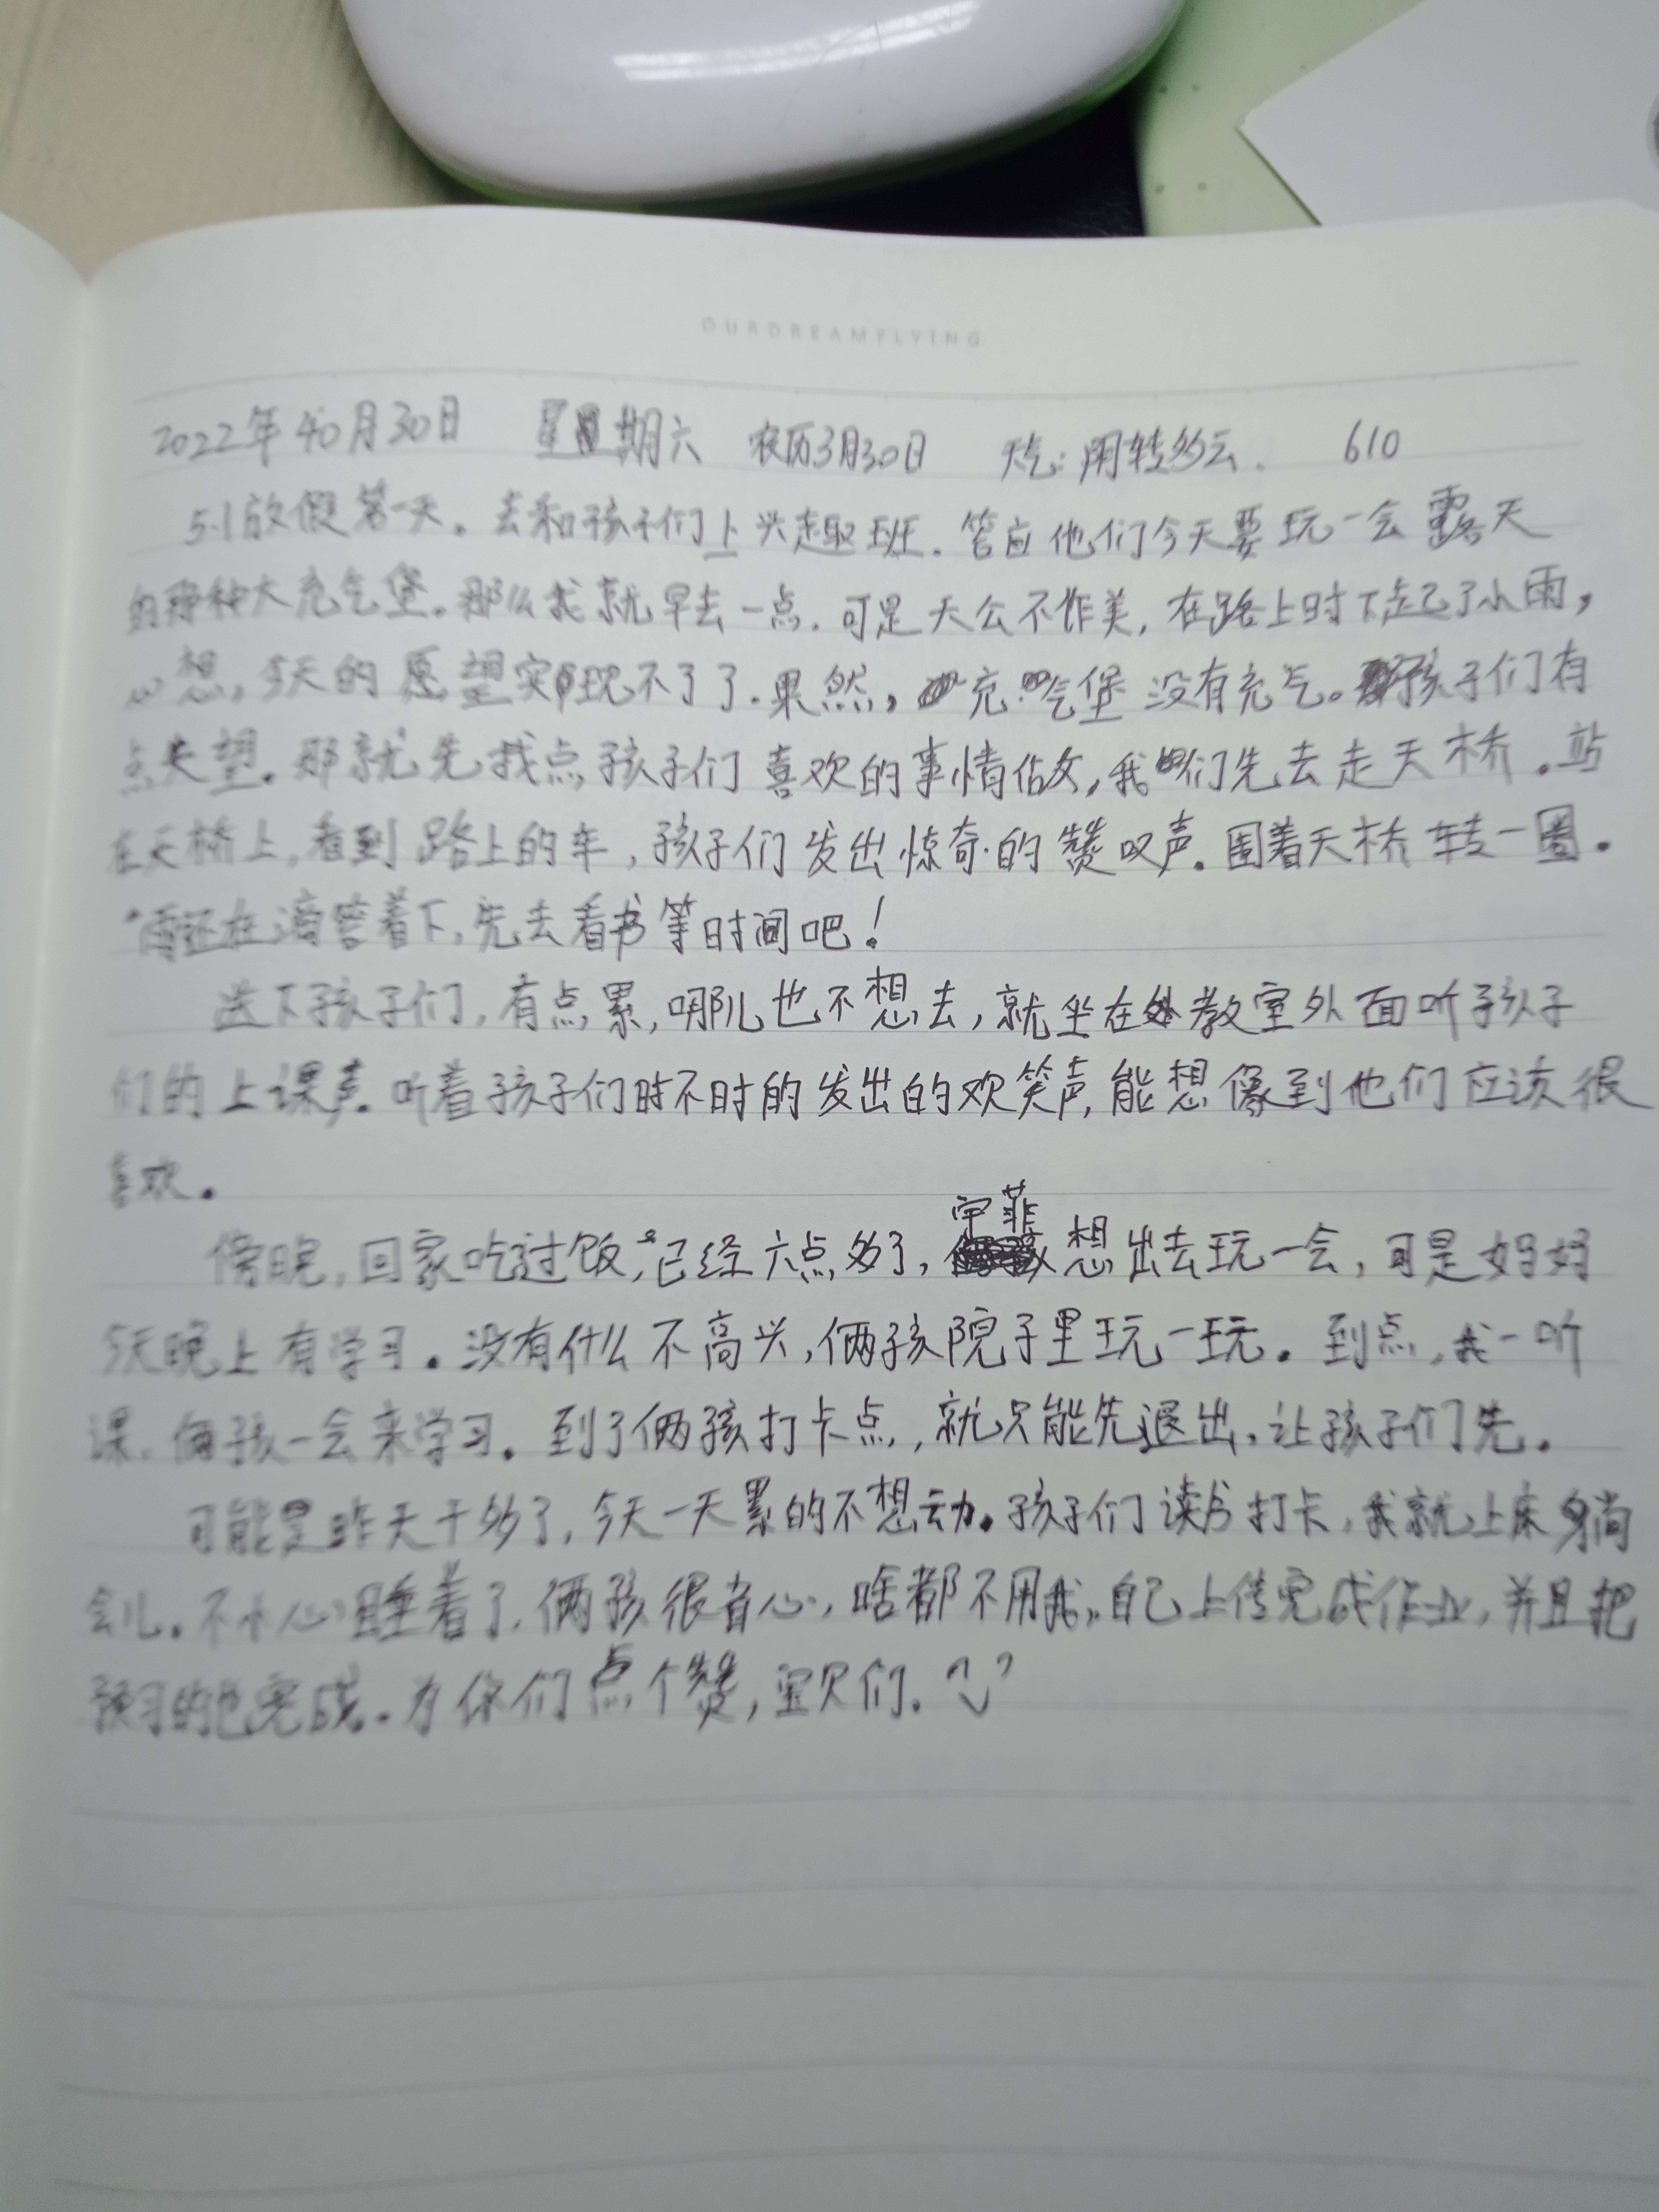 OURDREAMFLYING
2022年4月30日 星期六 农历3月30日 天气:阴转多云. 610
5.1放假第一天。去和孩子们上兴趣班.答应他们今天要玩一会露天
的那种大充气堡。那么我就早去一点.可是天公不作美,在路上时下起了小雨,
心想,今天的愿望实现不了了.果然,充气堡没有充气。孩子们有
点失望.那就先找点孩子们喜欢的事情做,我们先去走天桥.站
在天桥上,看到路上的车,孩子们发出惊奇的赞叹声.围着天桥转一圈.
雨还在滴答着下,先去看书等时间吧!
送下孩子们,有点累,哪儿也不想去,就坐在教室外面听孩子
们的上课声.听着孩子们时不时的发出的欢笑声,能想像到他们应该很
喜欢.
傍晚,回家吃过饭,已经六点多了,宇菲想出去玩一会,可是妈妈
今天晚上有学习.没有什么不高兴,俩孩院子里玩一玩.到点,我一听
课,俩孩一会来学习.到了俩孩打卡点,就只能先退出,让孩子们先.
可能是昨天干多了,今天一天累的不想动.孩子们读书打卡,我就上床躺
会儿.不小心睡着了,俩孩很省心,啥都不用我,自己上传完成作业,并且把
预习的也完成.为你们点个赞,宝贝们.